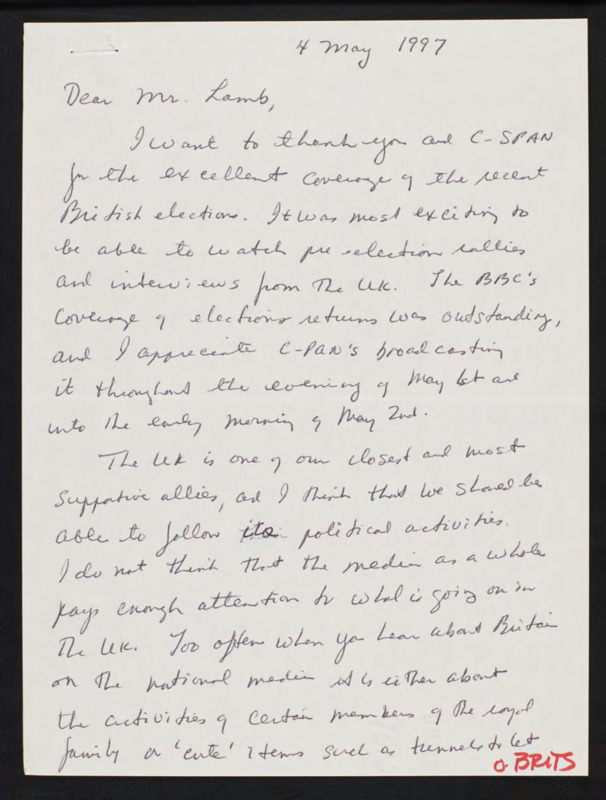 4 May 1997
Dear Mr. Lamb,
I want to thank you and C-SPAN
for the excellent coverage of the recent
British elections. It was most exciting to
be able to watch pre election rallies
and interviews from the UK. The BBC's
coverage of elections returns was outstanding,
and I appreciate C-PAN's broadcasting
it throughout the evening of May 1st and
into the early morning of May 2nd.
The UK is one of our closest and most
supportive allies, and I think that we should be
able to follow its political activities.
I do not think that the media as a whole
pays enough attention to what is going on in
the UK. Too often when you hear about Britain
on the national media it is either about
the activities of certain members of the royal
family or 'cute' items such as tunnels to let
o BRITS